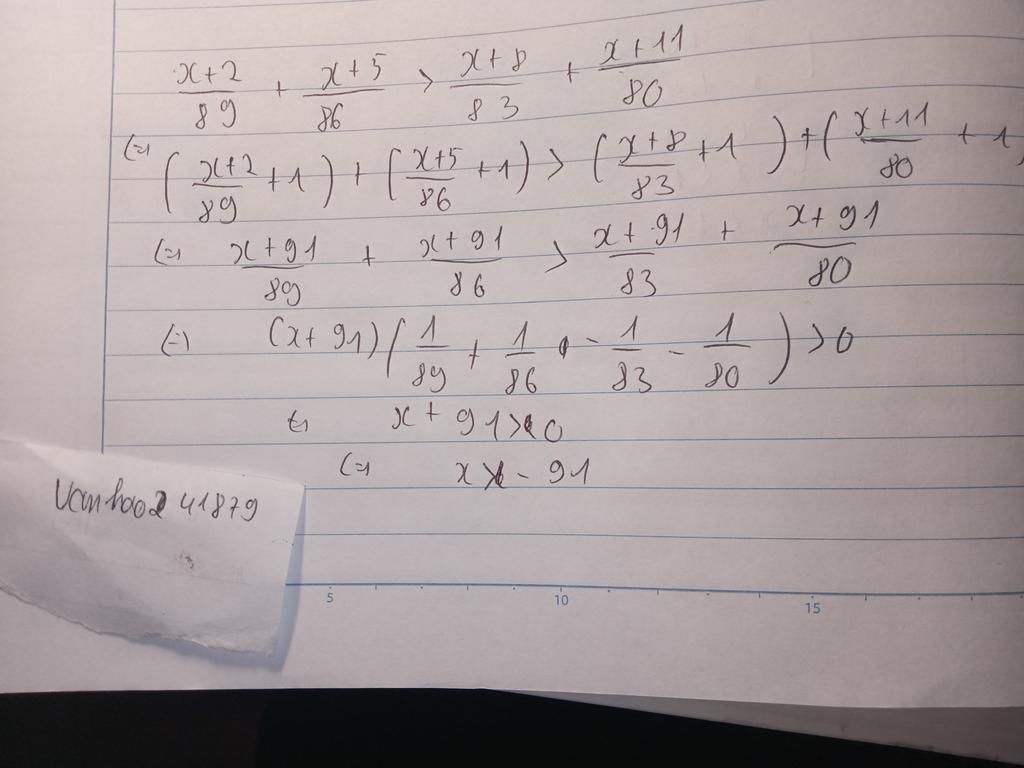 x+2/89 + x+5/86 > x+8/83 + x+11/80
(=) (x+2/89 + 1) + (x+5/86 + 1) > (x+8/83 + 1) + (x+11/80 + 1)
(=) x+91/89 + x+91/86 > x+91/83 + x+91/80
(=) (x+91)(1/89 + 1/86 - 1/83 - 1/80) > 0
(=) x + 91 < 0
(=) x < - 91
41879
5 10 15